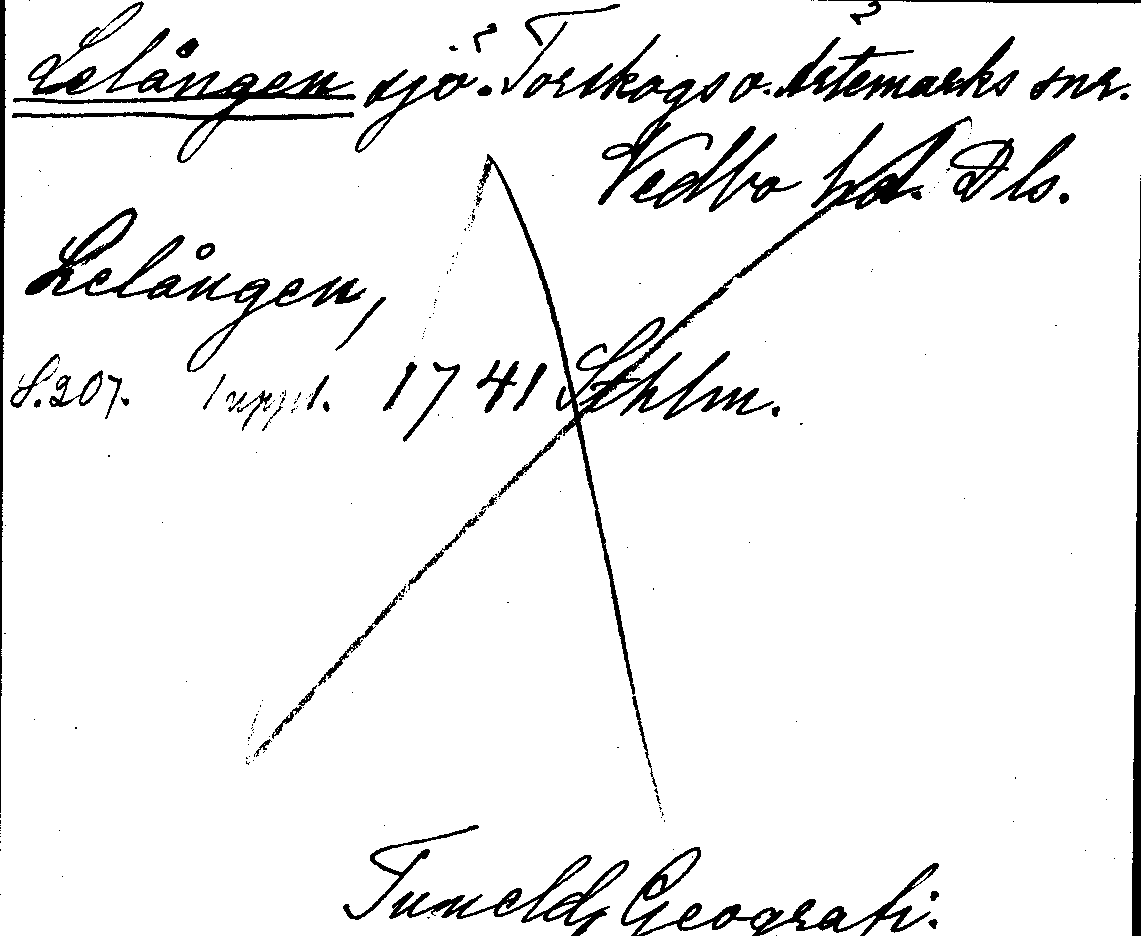 Lelången sjö. Torskogs o. Ärtemarks snr.
Vedbo hd. Dls.
Lelången,
S.207. 1 uppl. 1741 Sthlm.
Tunelds Geografi.